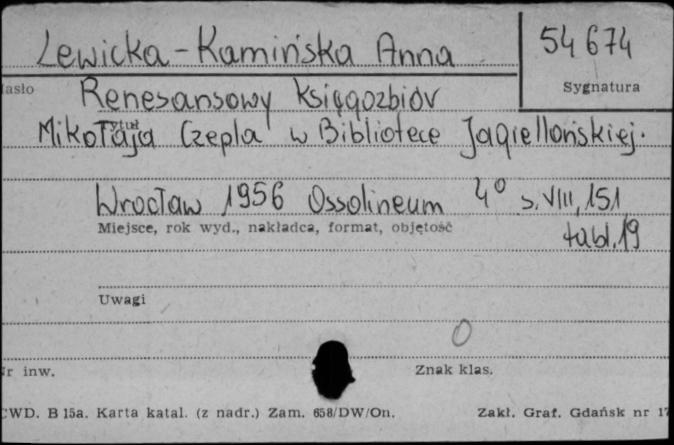 Lewicka-Kamińska Anna
54 674
asło
Sygnatura
Renesansowy księgozbiór
tytuł
Mikołaja Czepla w Bibliotece Jagiellońskiej.
Wrocław 1956 Ossolineum 4° s. VIII, 151
Miejsce, rok wyd., nakładca, format, objętość
tabl. 19
Uwagi
0
Nr inw.
Znak klas.
CWD. B 15a. Karta katal. (z nadr.) Zam. 658/DW/On.
Zakł. Graf. Gdańsk nr 17